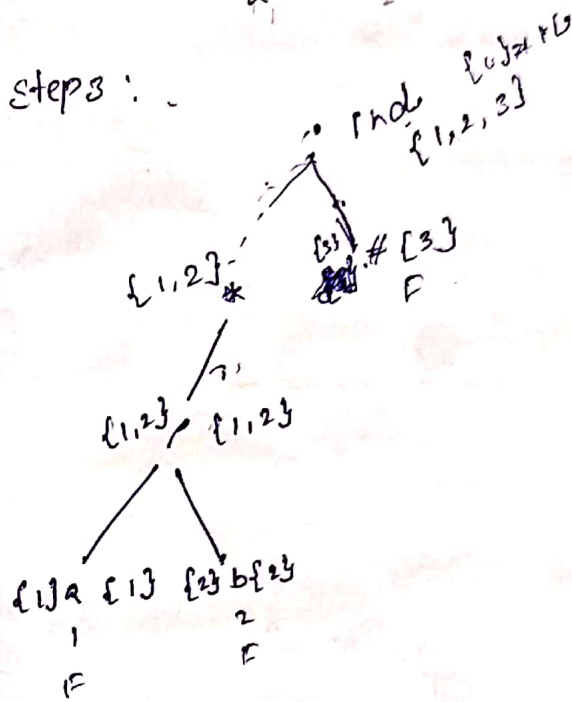 Step3 :
{1,2,3}
{1,2} *
{3} # {3}
F
{1,2} / {1,2}
{1} a {1} {2} b {2}
1 2
F F